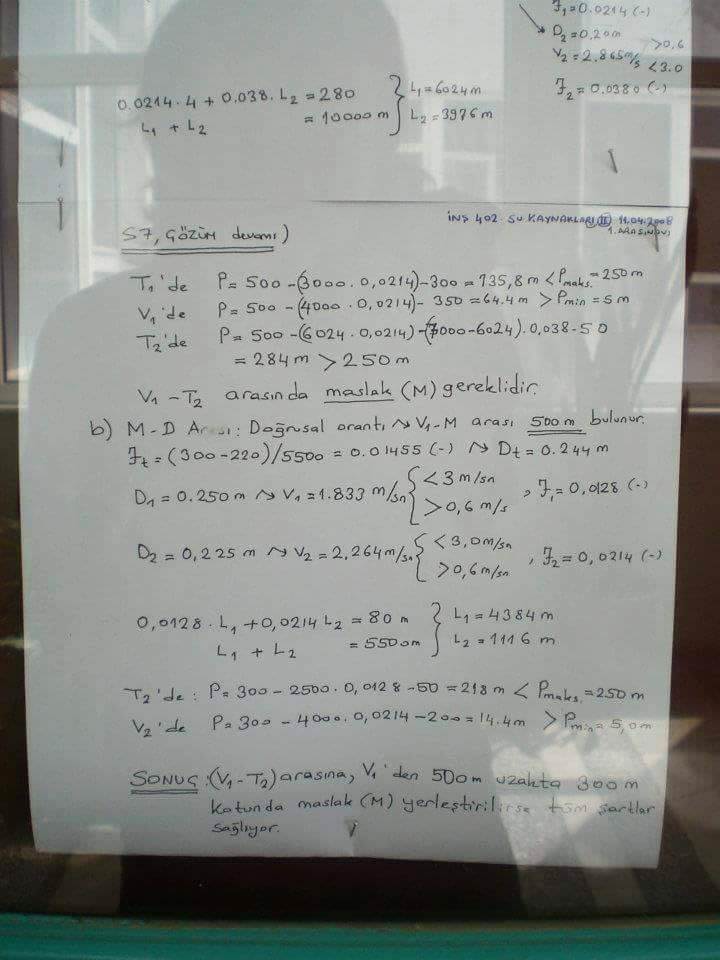 J₁=0.0214 (-)
D₂=0,20m
V₂=2.865m/s >0,6 <3.0
J₂=0.0380 (-)
0.0214.4 + 0.038.L₂ = 280 } L₁=6024m
L₁ + L₂ = 10000 m } L₂=3976 m
İNŞ 402 SU KAYNAKLARI (II) 11.04.2008
1. ARASINAVI
S7, ÇÖZÜM devamı)
T₁'de P= 500-(3000.0,0214)-300=135,8m < Pmaks.=250m
V₁'de P= 500-(4000.0,0214)- 350=64.4m > Pmin=5m
T₂'de P= 500-(6024.0,0214)-(7000-6024).0,038-50
= 284m > 250m
V₁-T₂ arasında maslak (M) gereklidir.
b) M-D Arası: Doğrusal orantı ⤳ V₁-M arası 500m bulunur.
Jt=(300-220)/5500=0.01455 (-) ⤳ Dt=0.244m
D₁=0.250m ⤳ V₁=1.833 m/sn { <3 m/sn >0,6 m/s , J₁=0,0128 (-)
D₂=0,225m ⤳ V₂=2,264m/sn { <3,0m/sn >0,6m/sn , J₂=0,0214 (-)
0,0128.L₁+0,0214L₂=80m } L₁=4384m
L₁ + L₂ =5500m } L₂=1116 m
T₂'de: P=300-2500.0,0128-50=218m < Pmaks.=250m
V₂'de P=300-4000.0,0214-200=14.4m > Pmin=5,0m
SONUÇ:(V₁-T₂)arasına, V₁'den 500m uzakta 300m
kotunda maslak (M) yerleştirilirse tüm şartlar
sağlıyor.